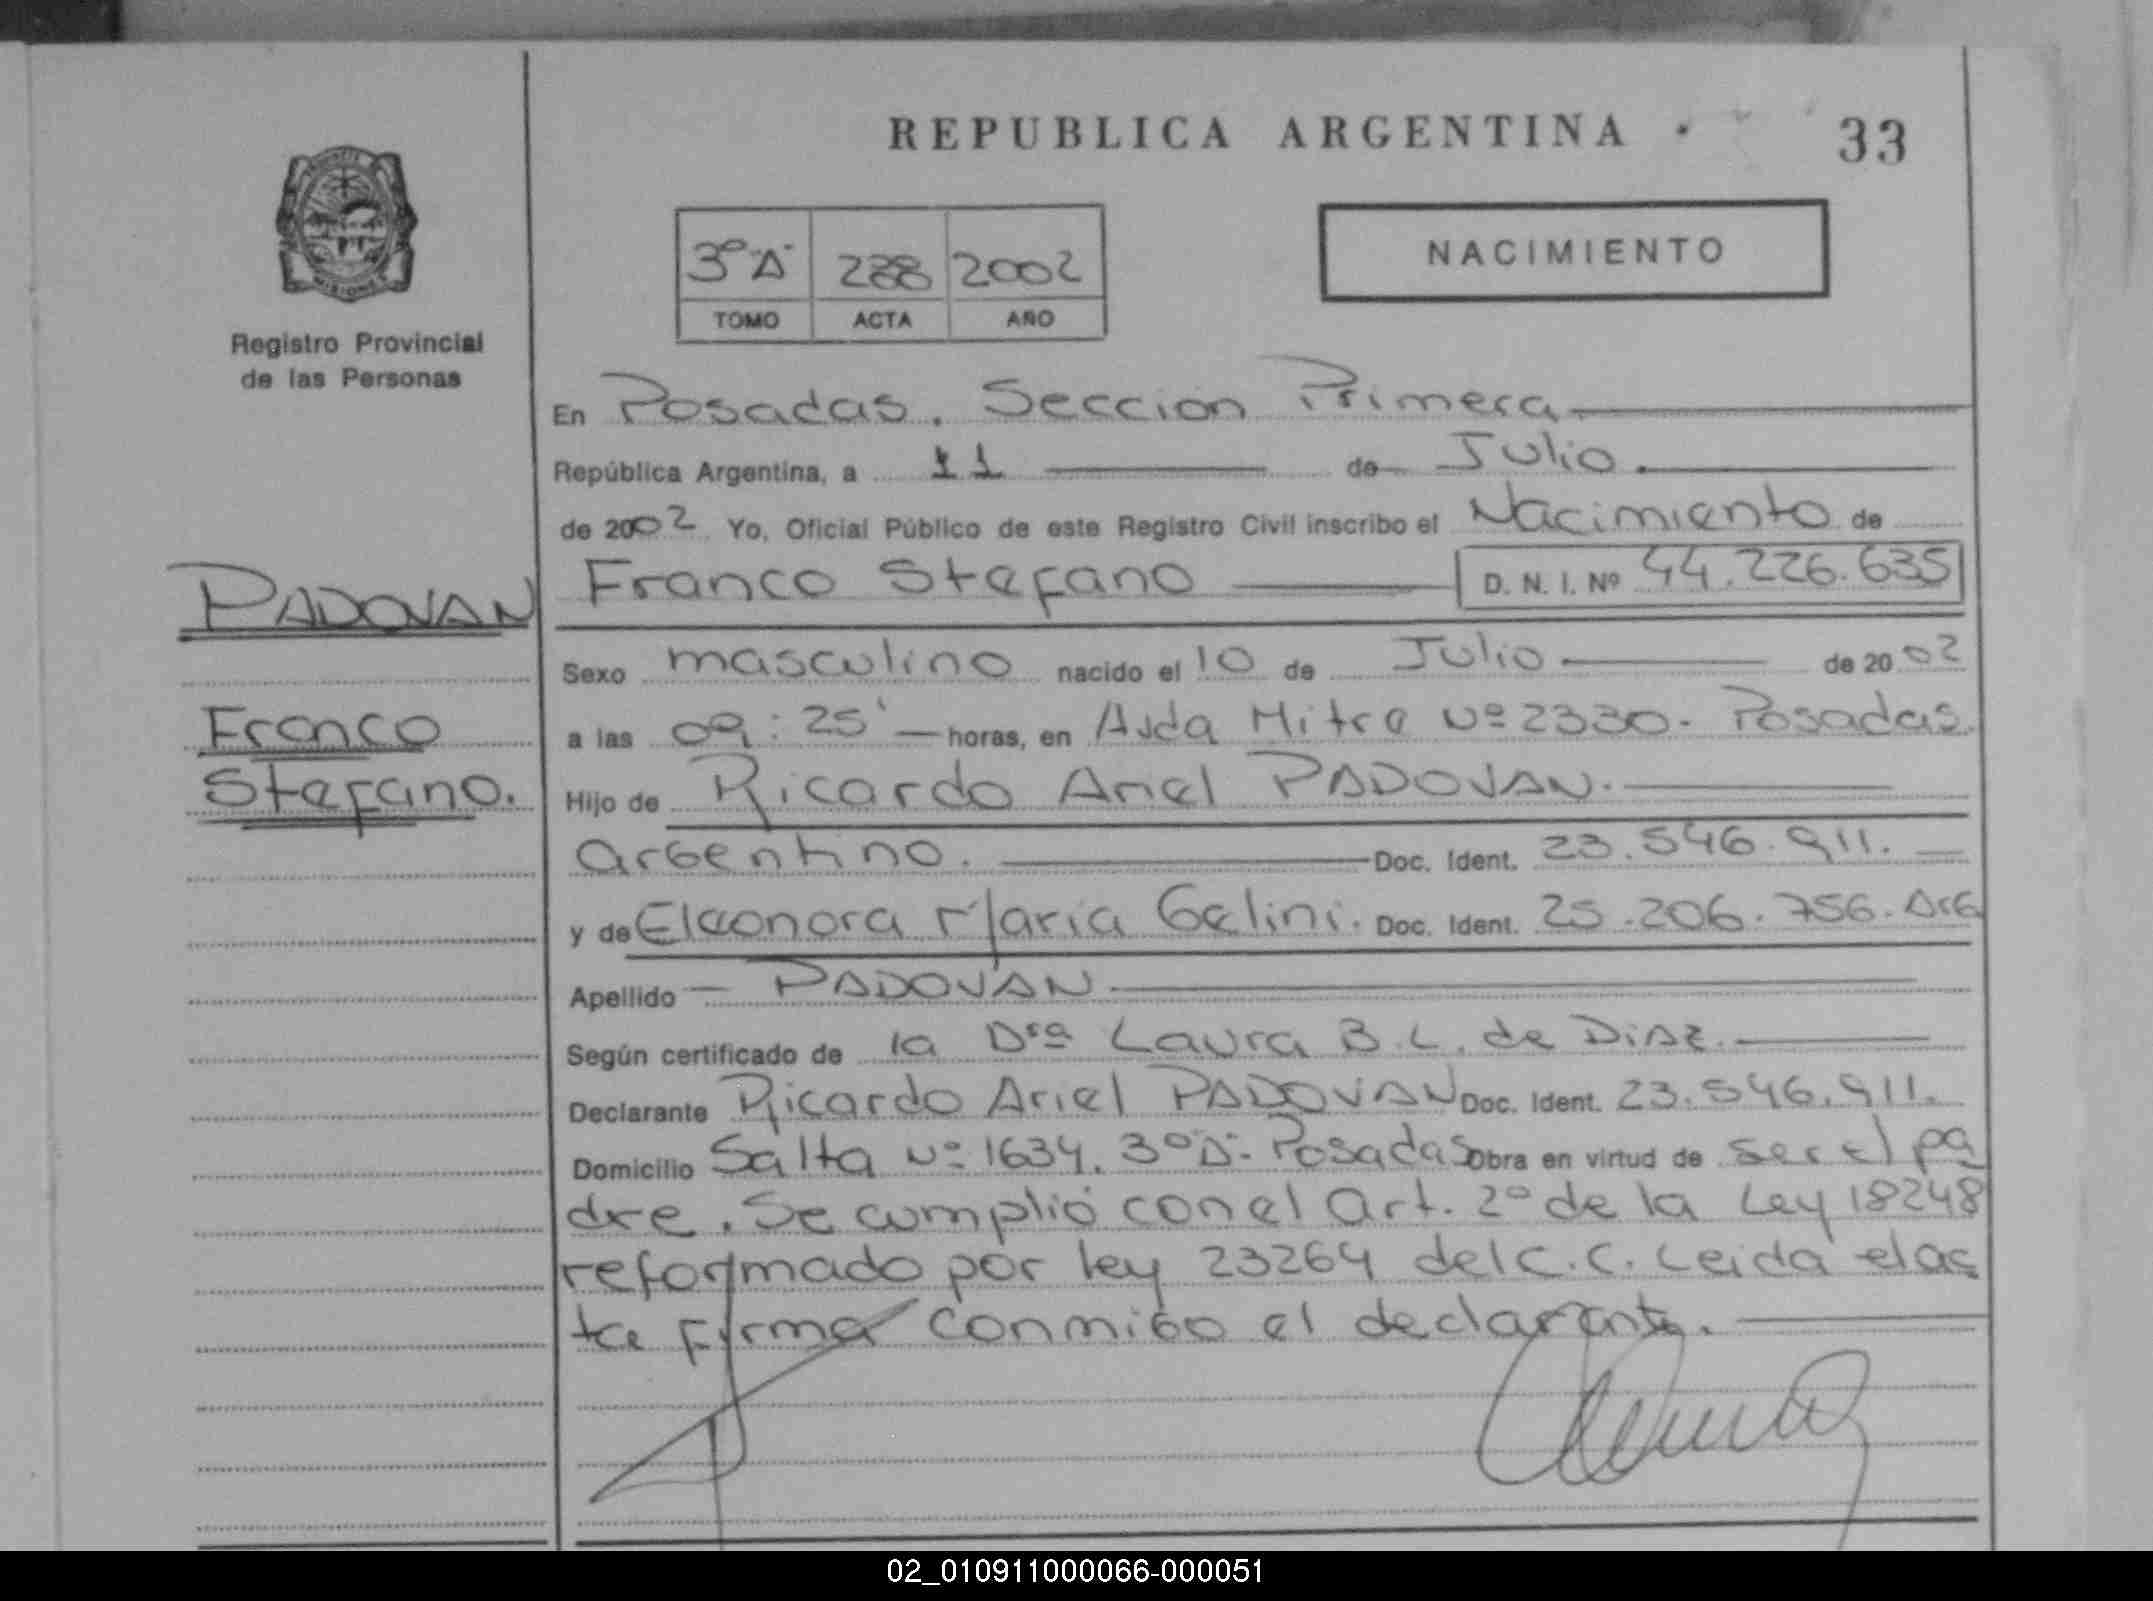 REPUBLICA ARGENTINA
33
3º A 288 2002
TOMO ACTA AÑO
NACIMIENTO
MISIONES
Registro Provincial
de las Personas
En Posadas. Seccion Primera
República Argentina, a 11 de Julio.
de 2002 Yo, Oficial Público de este Registro Civil inscribo el Nacimiento de
Franco Stefano D. N. I. Nº 44.226.635
PADOVAN
Sexo masculino nacido el 10 de Julio de 2002
Franco
a las 09:25' horas, en Avda Mitre Nº 2330. Posadas.
Stefano.
Hijo de Ricardo Ariel PADOVAN.
argentino. Doc. Ident. 23.546.911.
y de Eleonora Maria Gelini. Doc. Ident. 25.206.756. ArG
Apellido PADOVAN
Según certificado de la Dra Laura B. L. de DiAz.
Declarante Ricardo Ariel PADOVAN Doc. Ident. 23.546.911.
Domicilio Salta Nº 1634. 3º A. Posadas Obra en virtud de ser el pa
dre. Se cumplió con el Art. 2º de la Ley 18248
reformado por ley 23264 del C. C. Leida el ac
ta firma conmigo el declarante.
02_010911000066-000051